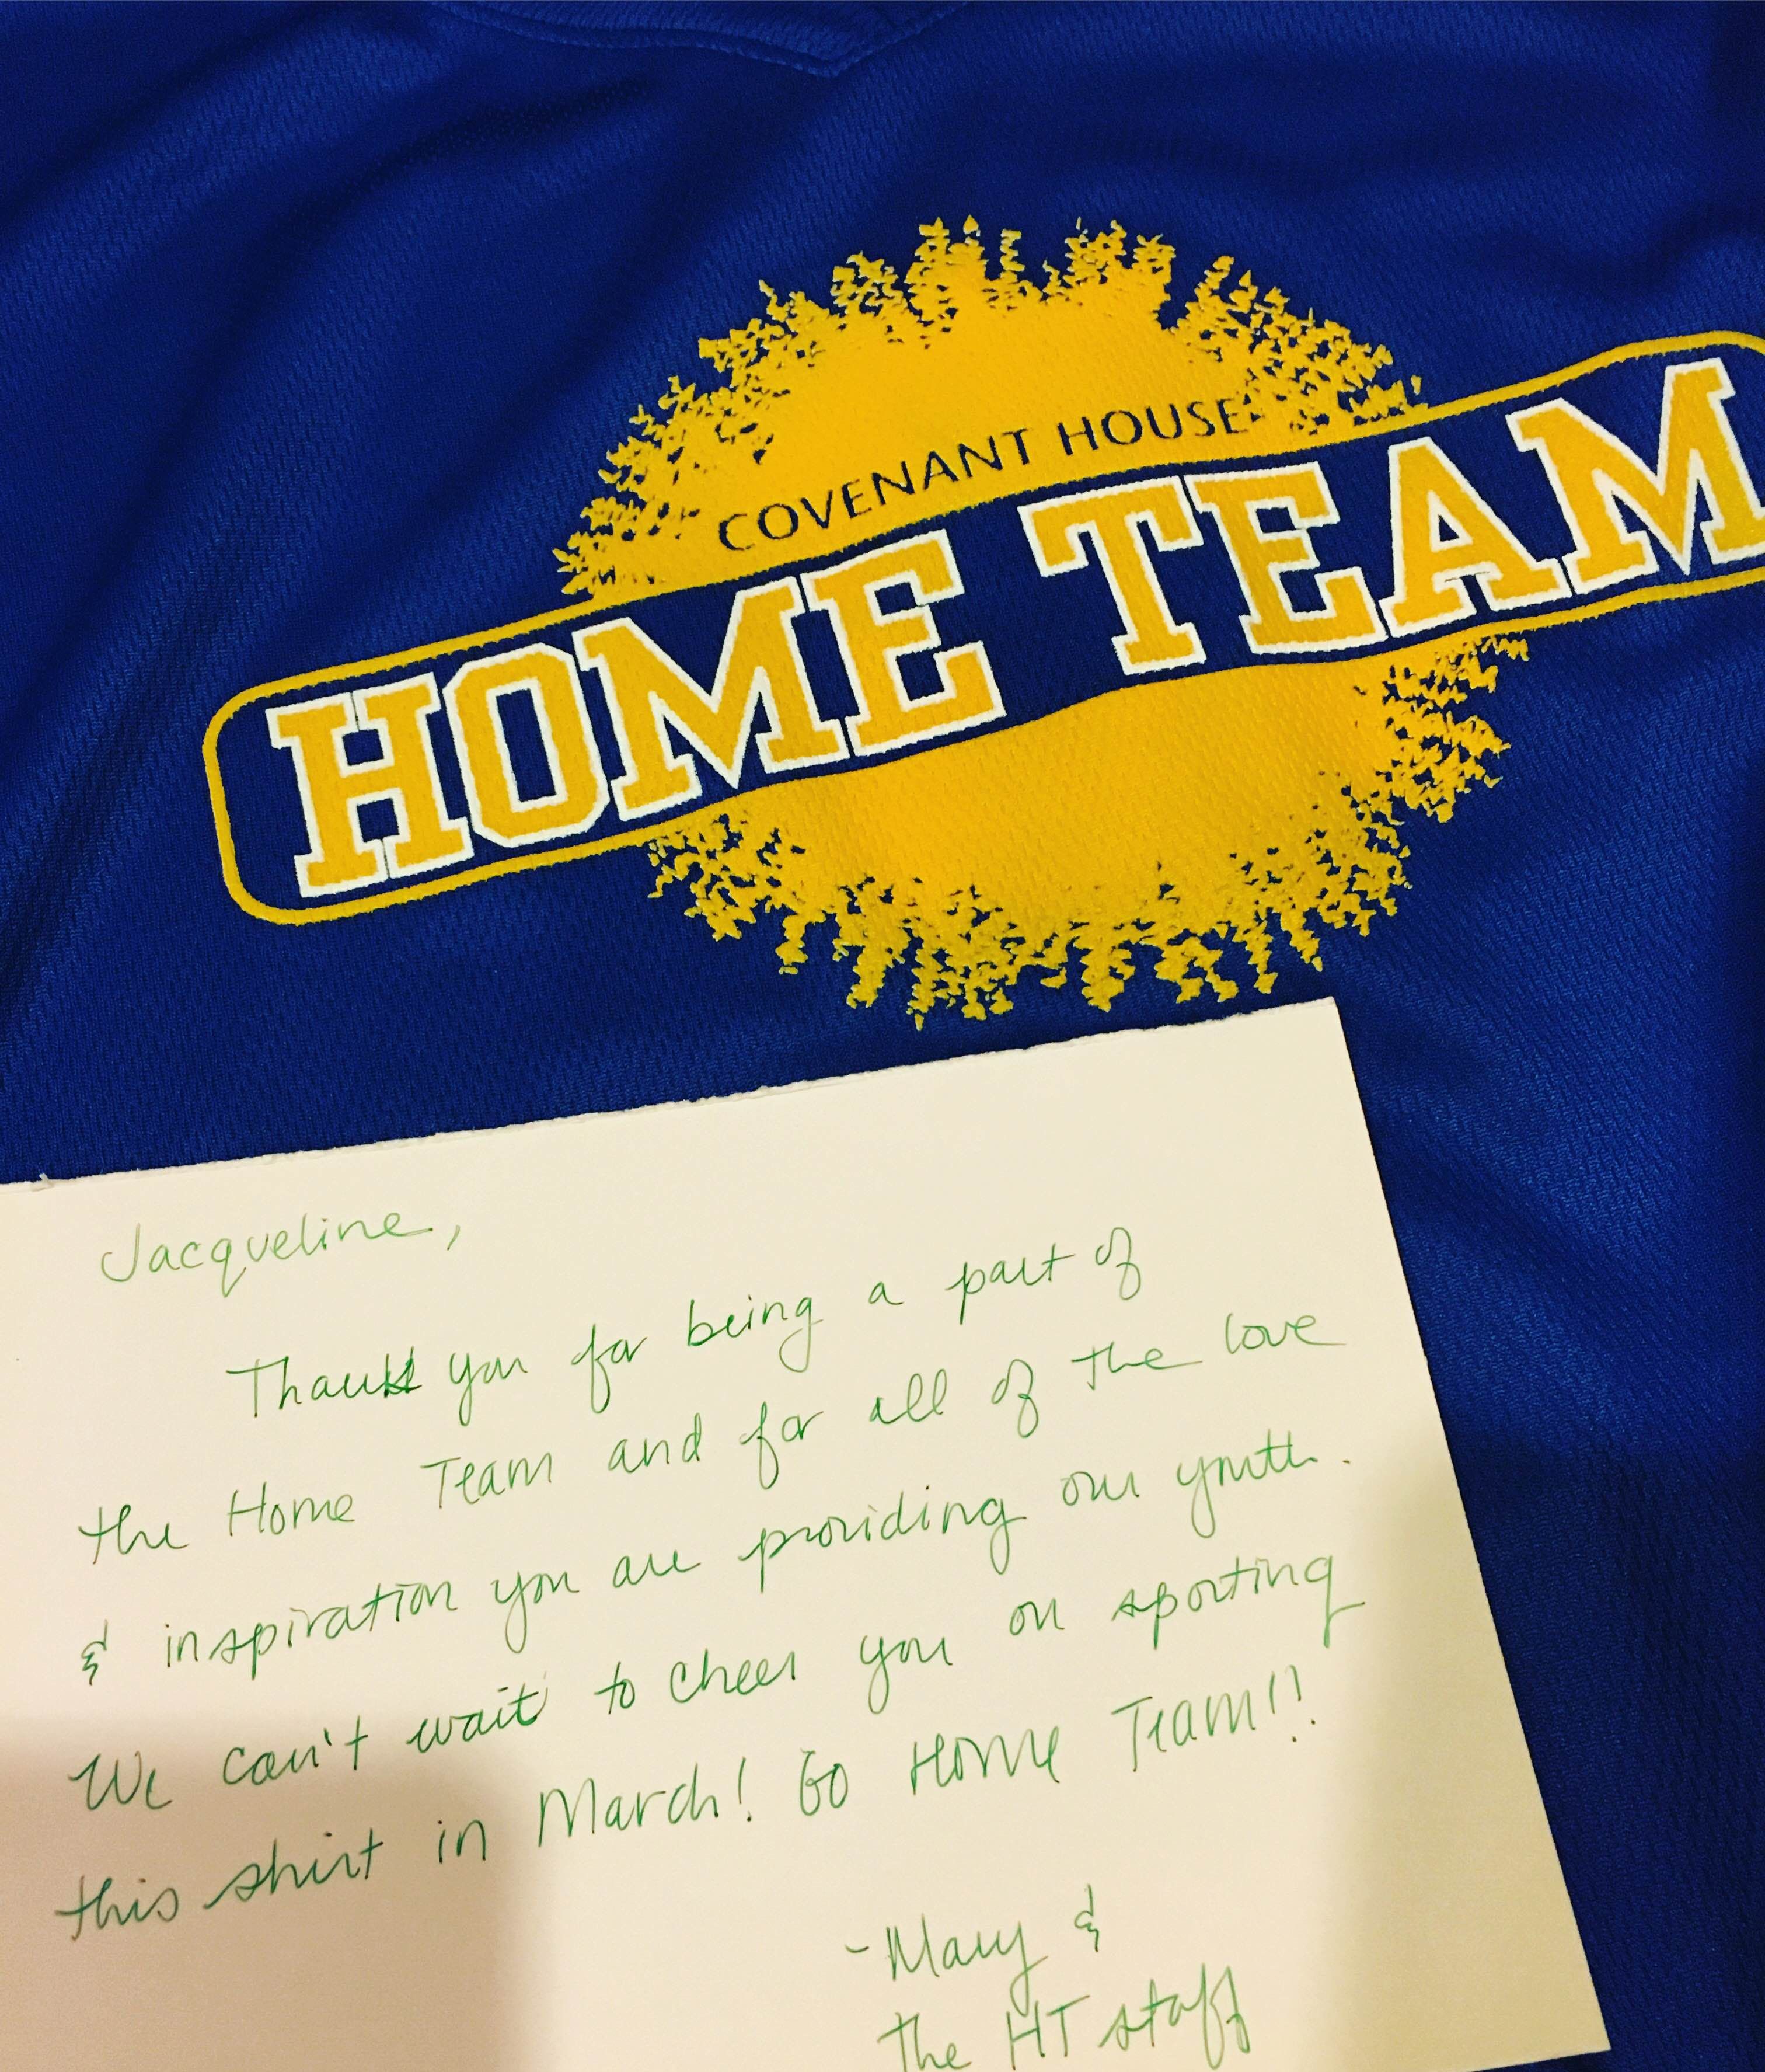 COVENANT HOUSE
HOME TEAM
Jacqueline,
Thank you for being a part of
the Home Team and for all of the love
& inspiration you are providing our youth.
We can't wait to cheer you on sporting
this shirt in March! Go Home Team!!
- Mary &
the HT staff